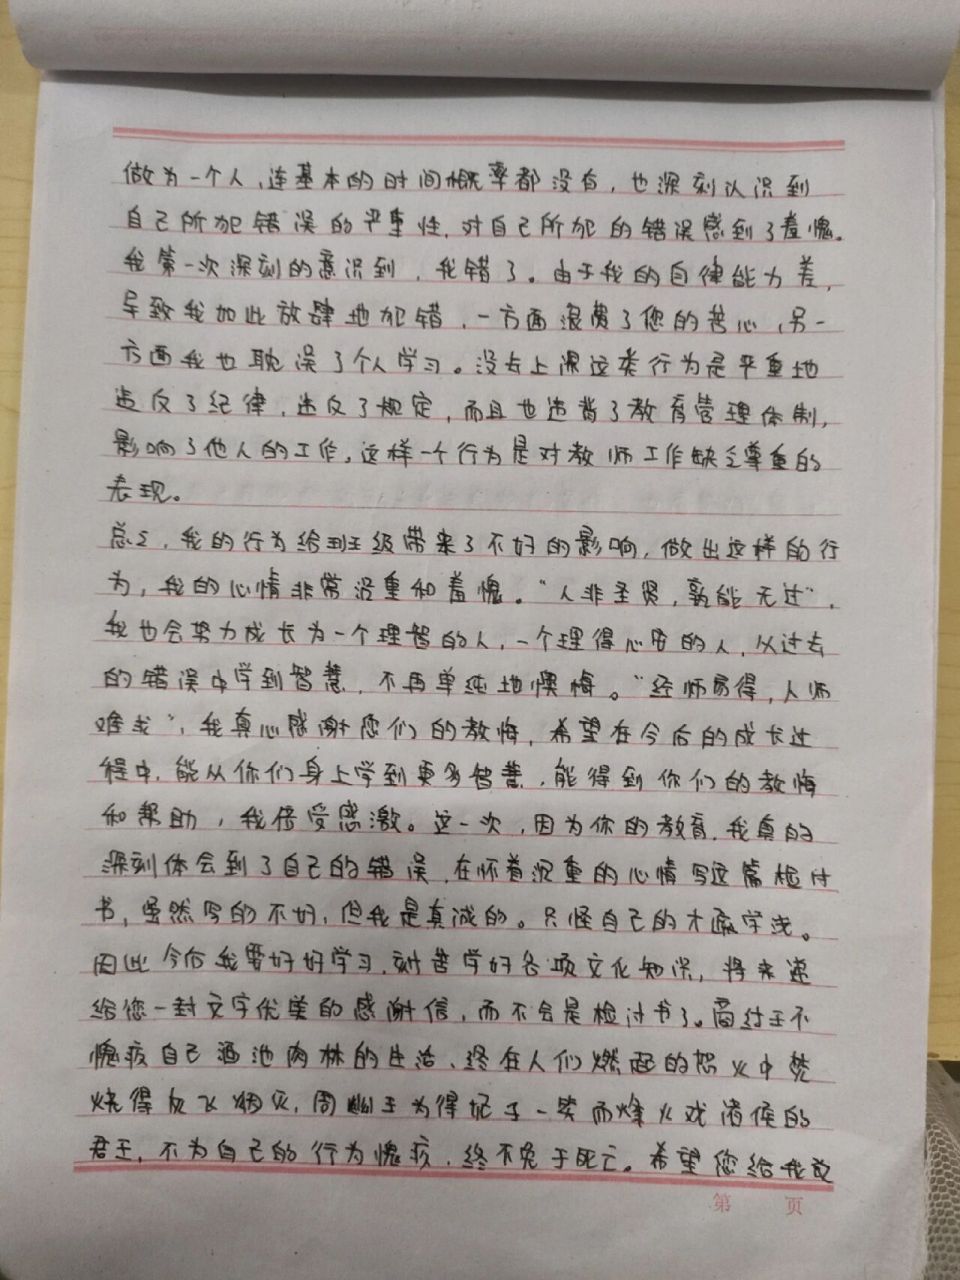 做为一个人,连基本的时间概率都没有,也深刻认识到
自己所犯错误的严重性,对自己所犯的错误感到了羞愧.
我第一次深刻的意识到,我错了。由于我的自律能力差,
导致我如此放肆地犯错,一方面浪费了您的苦心,另一
方面我也耽误了个人学习。没去上课这类行为是严重地
违反了纪律,违反了规定,而且也违背了教育管理体制,
影响了他人的工作,这样一个行为是对教师工作缺乏尊重的
表现。
总之,我的行为给班级带来了不好的影响,做出这样的行
为,我的心情非常沉重和羞愧。"人非圣贤,孰能无过",
我也会努力成长为一个理智的人,一个理得心安的人,从过去
的错误中学到智慧,不再单纯地懊悔。"经师易得,人师
难求",我真心感谢您们的教悔,希望在今后的成长过
程中,能从你们身上学到更多智慧,能得到你们的教悔
和帮助,我倍受感激。这一次,因为你的教育,我真的
深刻体会到了自己的错误,在怀着沉重的心情写这篇检讨
书,虽然写的不好,但我是真诚的。只怪自己的才疏学浅。
因此今后我要好好学习,刻苦学好各项文化知识,将来递
给您一封文字优美的感谢信,而不会是检讨书了。商纣王不
愧疚自己酒池肉林的生活,终在人们燃起的怒火中焚
烧得灰飞烟灭,周幽王为得妃子一笑而烽火戏诸侯的
君王,不为自己的行为愧疚,终不免于死亡。希望您给我改
第 页